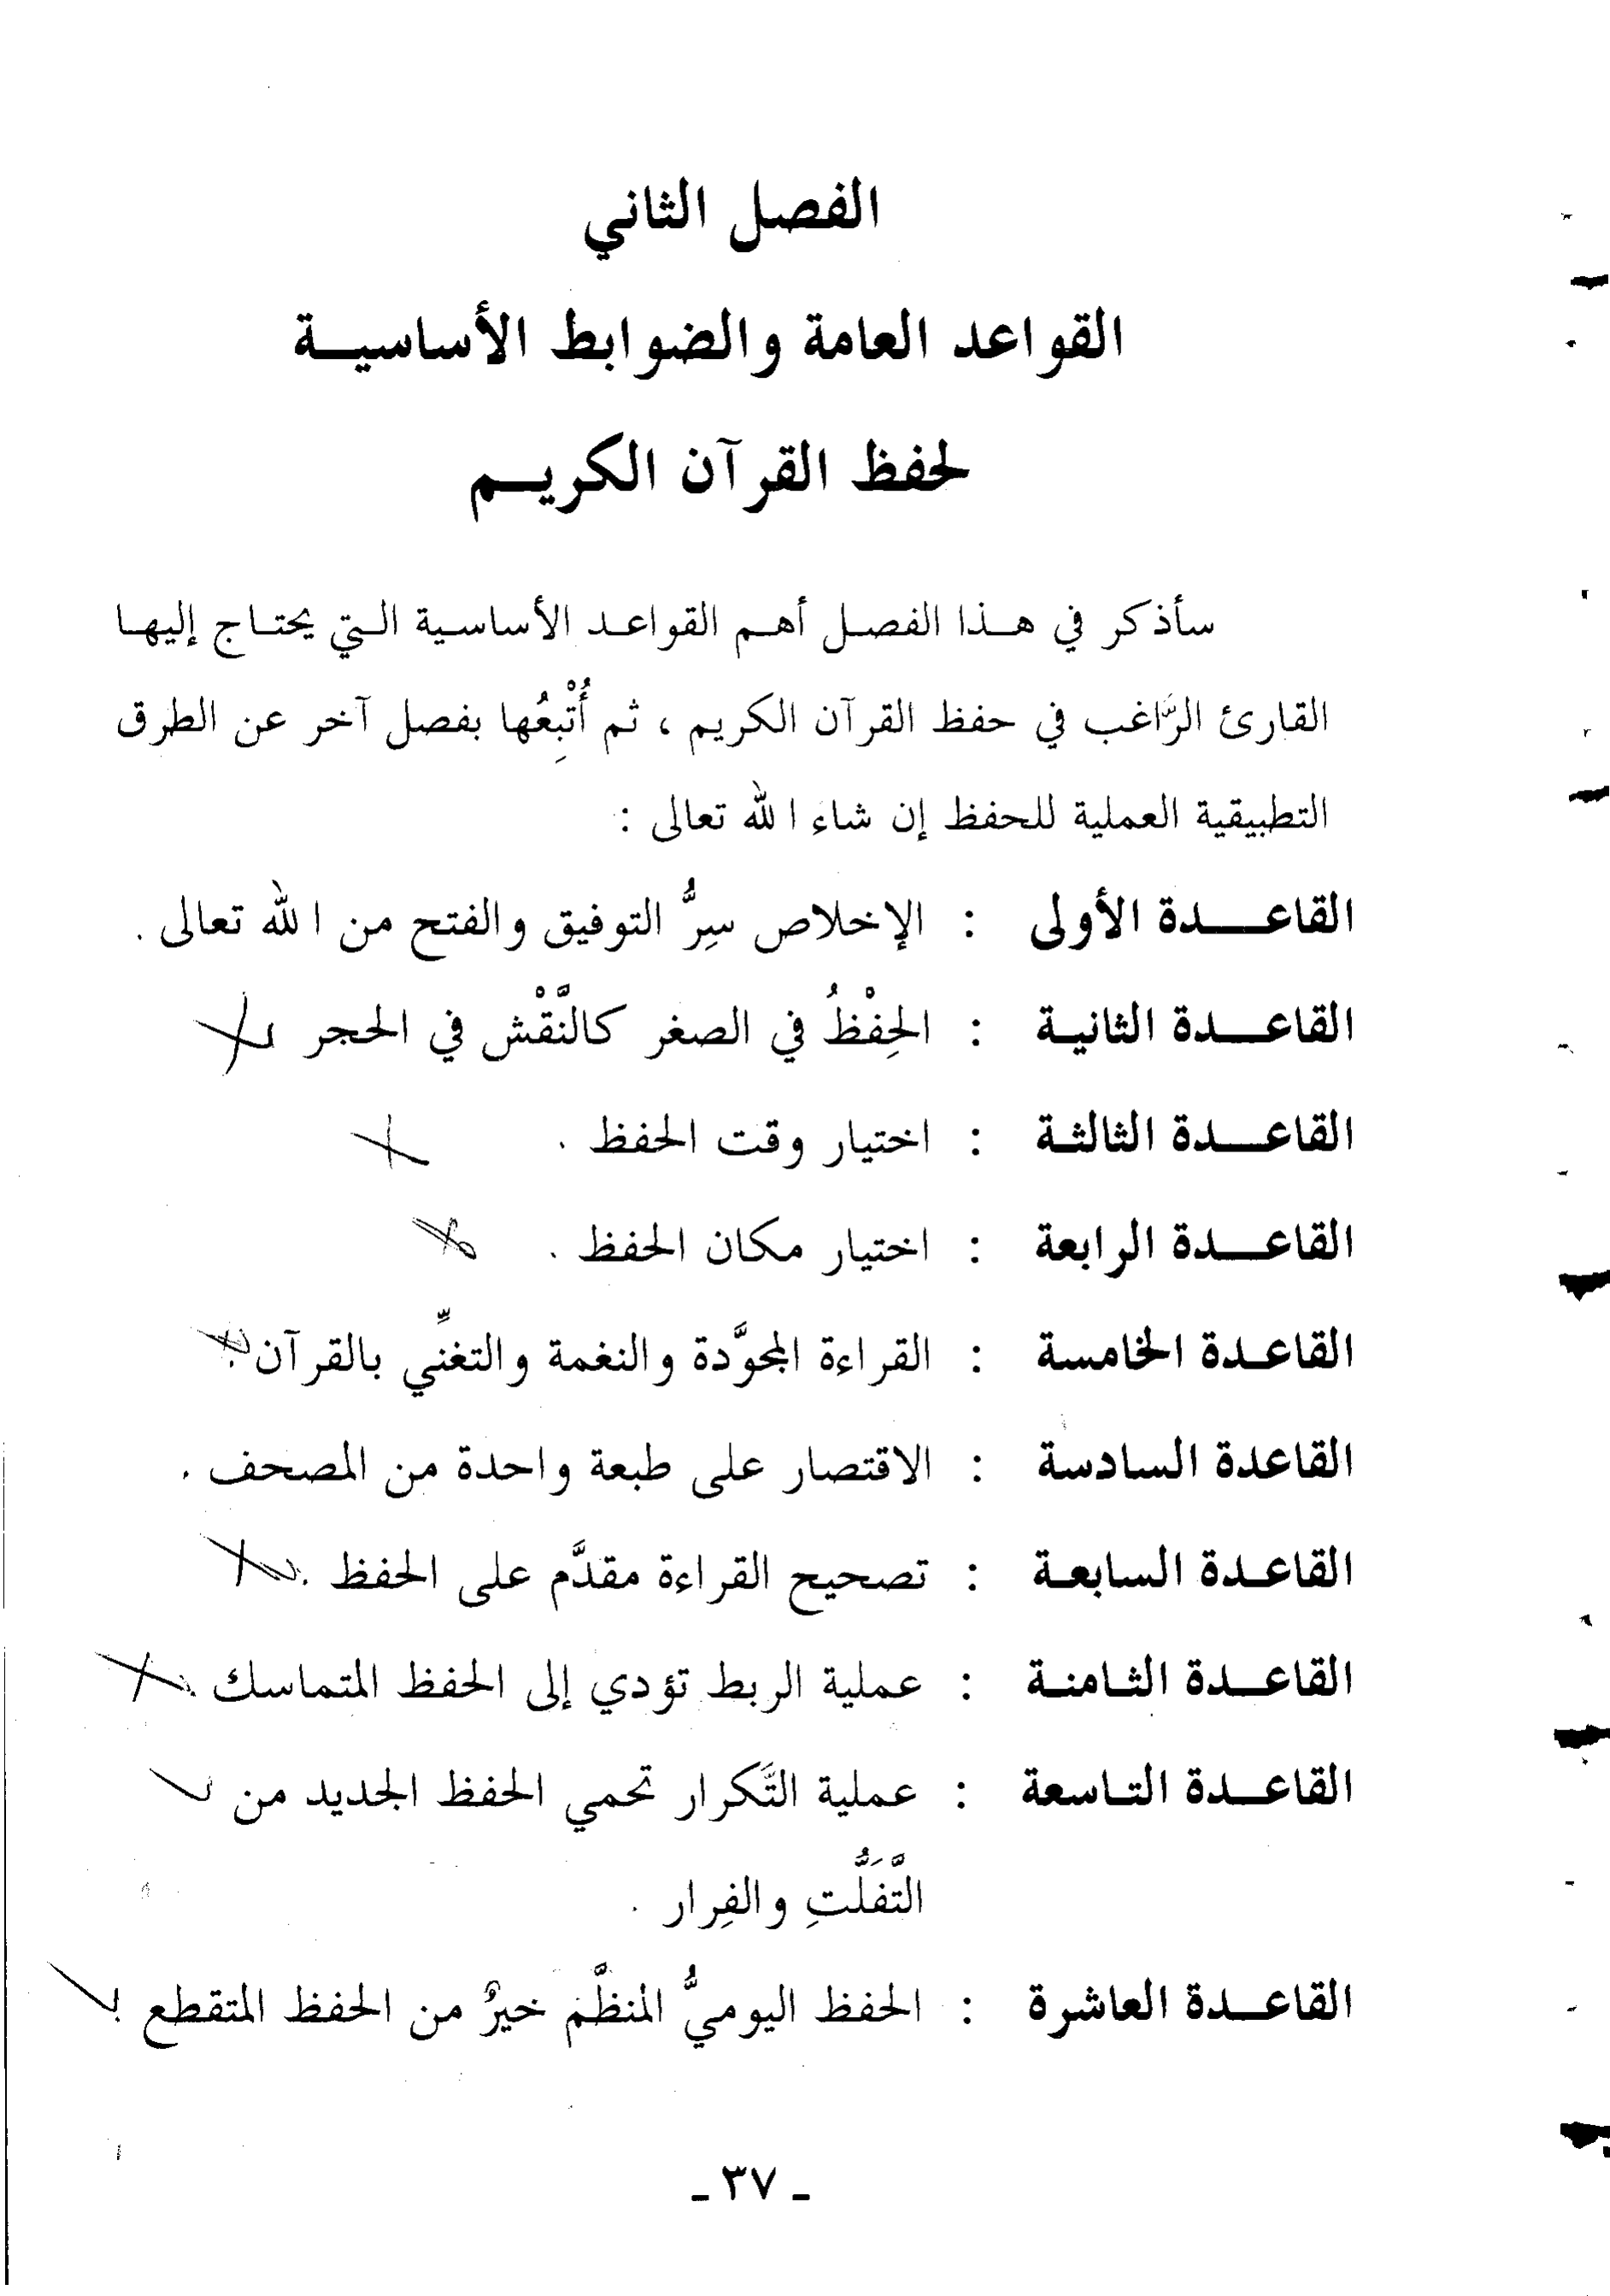 الفصل الثاني
القواعد العامة والضوابط الأساسيـــة
لحفظ القرآن الكريـــم
سأذكر في هـذا الفصـل أهـم القواعـد الأساسـية الـتي يحتـاج إليهـا
القارئ الرَّاغب في حفظ القرآن الكريم ، ثم أُتْبِعُها بفصل آخر عن الطرق
التطبيقية العملية للحفظ إن شاء الله تعالى :
القاعـــدة الأولى : الإخلاص سِرُّ التوفيق والفتح من الله تعالى .
القاعـــدة الثانيـة : الحِفْظُ في الصغر كالنَّقْش في الحجر
القاعـــدة الثالثـة : اختيار وقت الحفظ .
القاعـــدة الرابعة : اختيار مكان الحفظ .
القاعـدة الخامسة : القراءة المجوَّدة والنغمة والتغنِّي بالقرآن .
القاعدة السادسة : الاقتصار على طبعة واحدة من المصحف .
القاعـدة السابعـة : تصحيح القراءة مقدَّم على الحفظ .
القاعــدة الثـامنـة : عملية الربط تؤدي إلى الحفظ المتماسك .
القاعــدة التـاسعة : عملية التَّكرار تحمي الحفظ الجديد من
التَّفَلُّتِ والفِرار .
القاعــدة العاشرة : الحفظ اليوميُّ المنظَّم خيرٌ من الحفظ المتقطع .
ـ ٣٧ ـ